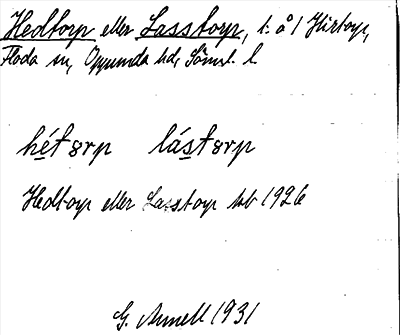 Hedtorp eller Lasstorp, t. å 1 Yürtorp,
Floda sn, Oppunda hd, Söml. l.
hétørp lástørp
Hedtorp eller Lasstorp hb 1926
G. Annell 1931